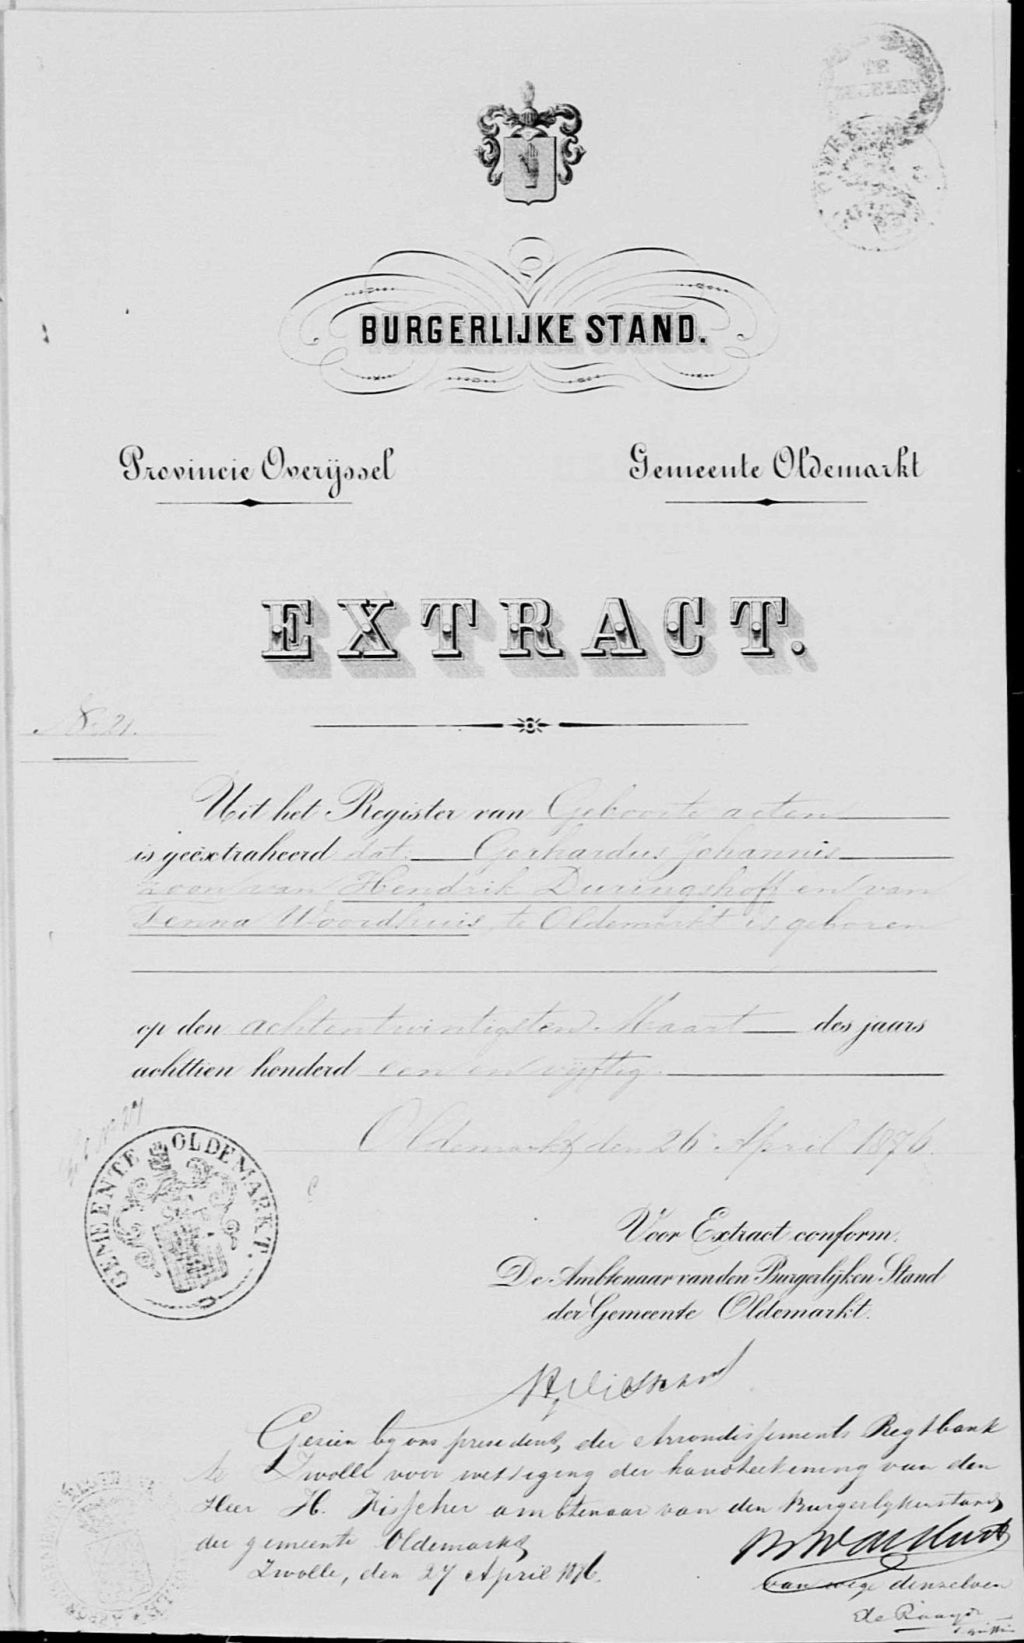 TE
BURGERLIJKE STAND.
Provincie Overijssel
Gemeente Oldemarkt
EXTRACT.
No. 21.
Uit het Register van Geboorte acten
is geëxtraheerd dat Gerhardus Johannis
zoon van Hendrik Duringshoff en van
Jenna Woordhuis, te Oldemarkt is geboren
op den achtentwintigsten Maart des jaars
achttien honderd een en vijftig.
Oldemarkt den 26 April 1876.
GEMEENTE OLDEMARKT.
Voor Extract conform.
De Ambtenaar van den Burgerlijken Stand
der Gemeente Oldemarkt.
Gezien by ons president, der Arrondissements Regtbank
te Zwolle voor wettiging der handteekening van den
Heer H. Visscher ambtenaar van den Burgerlykenstand
der gemeente Oldemarkt
Zwolle, den 27 April 1876.
van wege denzelven